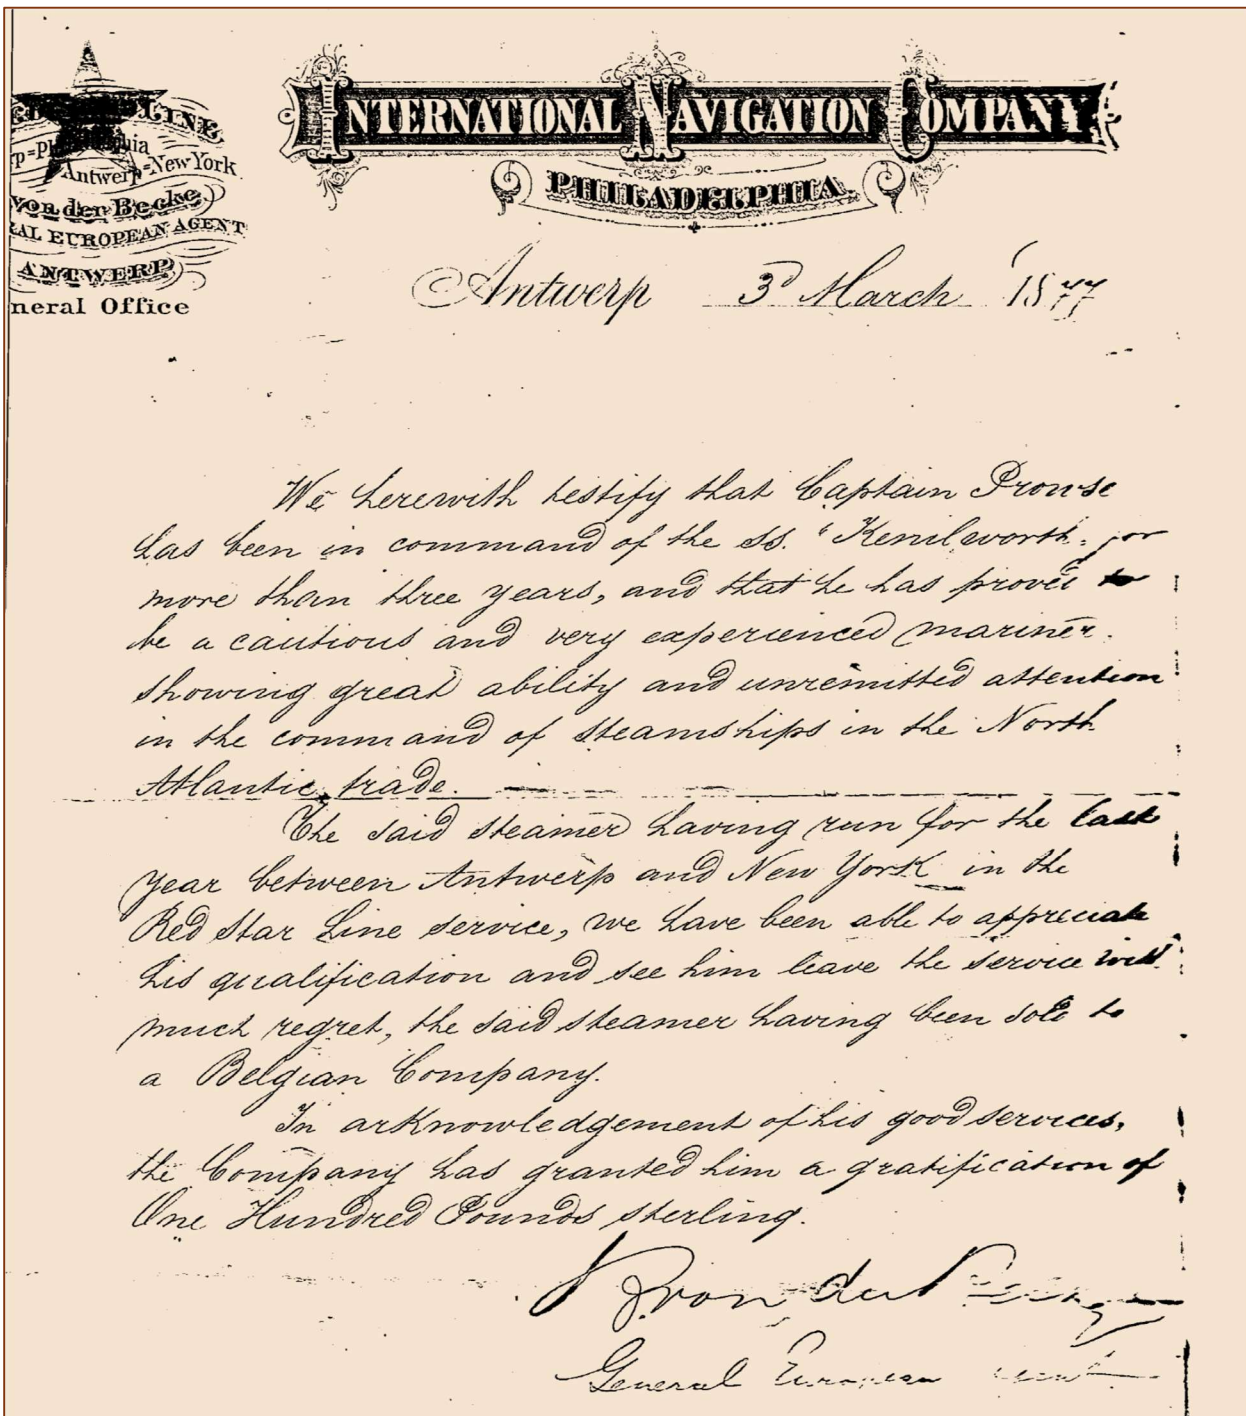 LINE
Antwerp=New York
von der Becke
EUROPEAN AGENT
ANTWERP
neral Office
INTERNATIONAL NAVIGATION COMPANY
PHILADELPHIA
Antwerp 3d March 1877
We herewith testify that Captain Prowse
has been in command of the ss. "Kenilworth" for
more than three years, and that he has proved to
be a cautious and very experienced mariner.
showing great ability and unremitted attention
in the command of steamships in the North
Atlantic trade.
The said steamer having run for the last
year between Antwerp and New York in the
Red Star Line service, we have been able to appreciate
his qualification and see him leave the service with
much regret, the said steamer having been sold to
a Belgian Company.
In acknowledgement of his good services,
the Company has granted him a gratification of
One Hundred Pounds sterling.
von der
General European